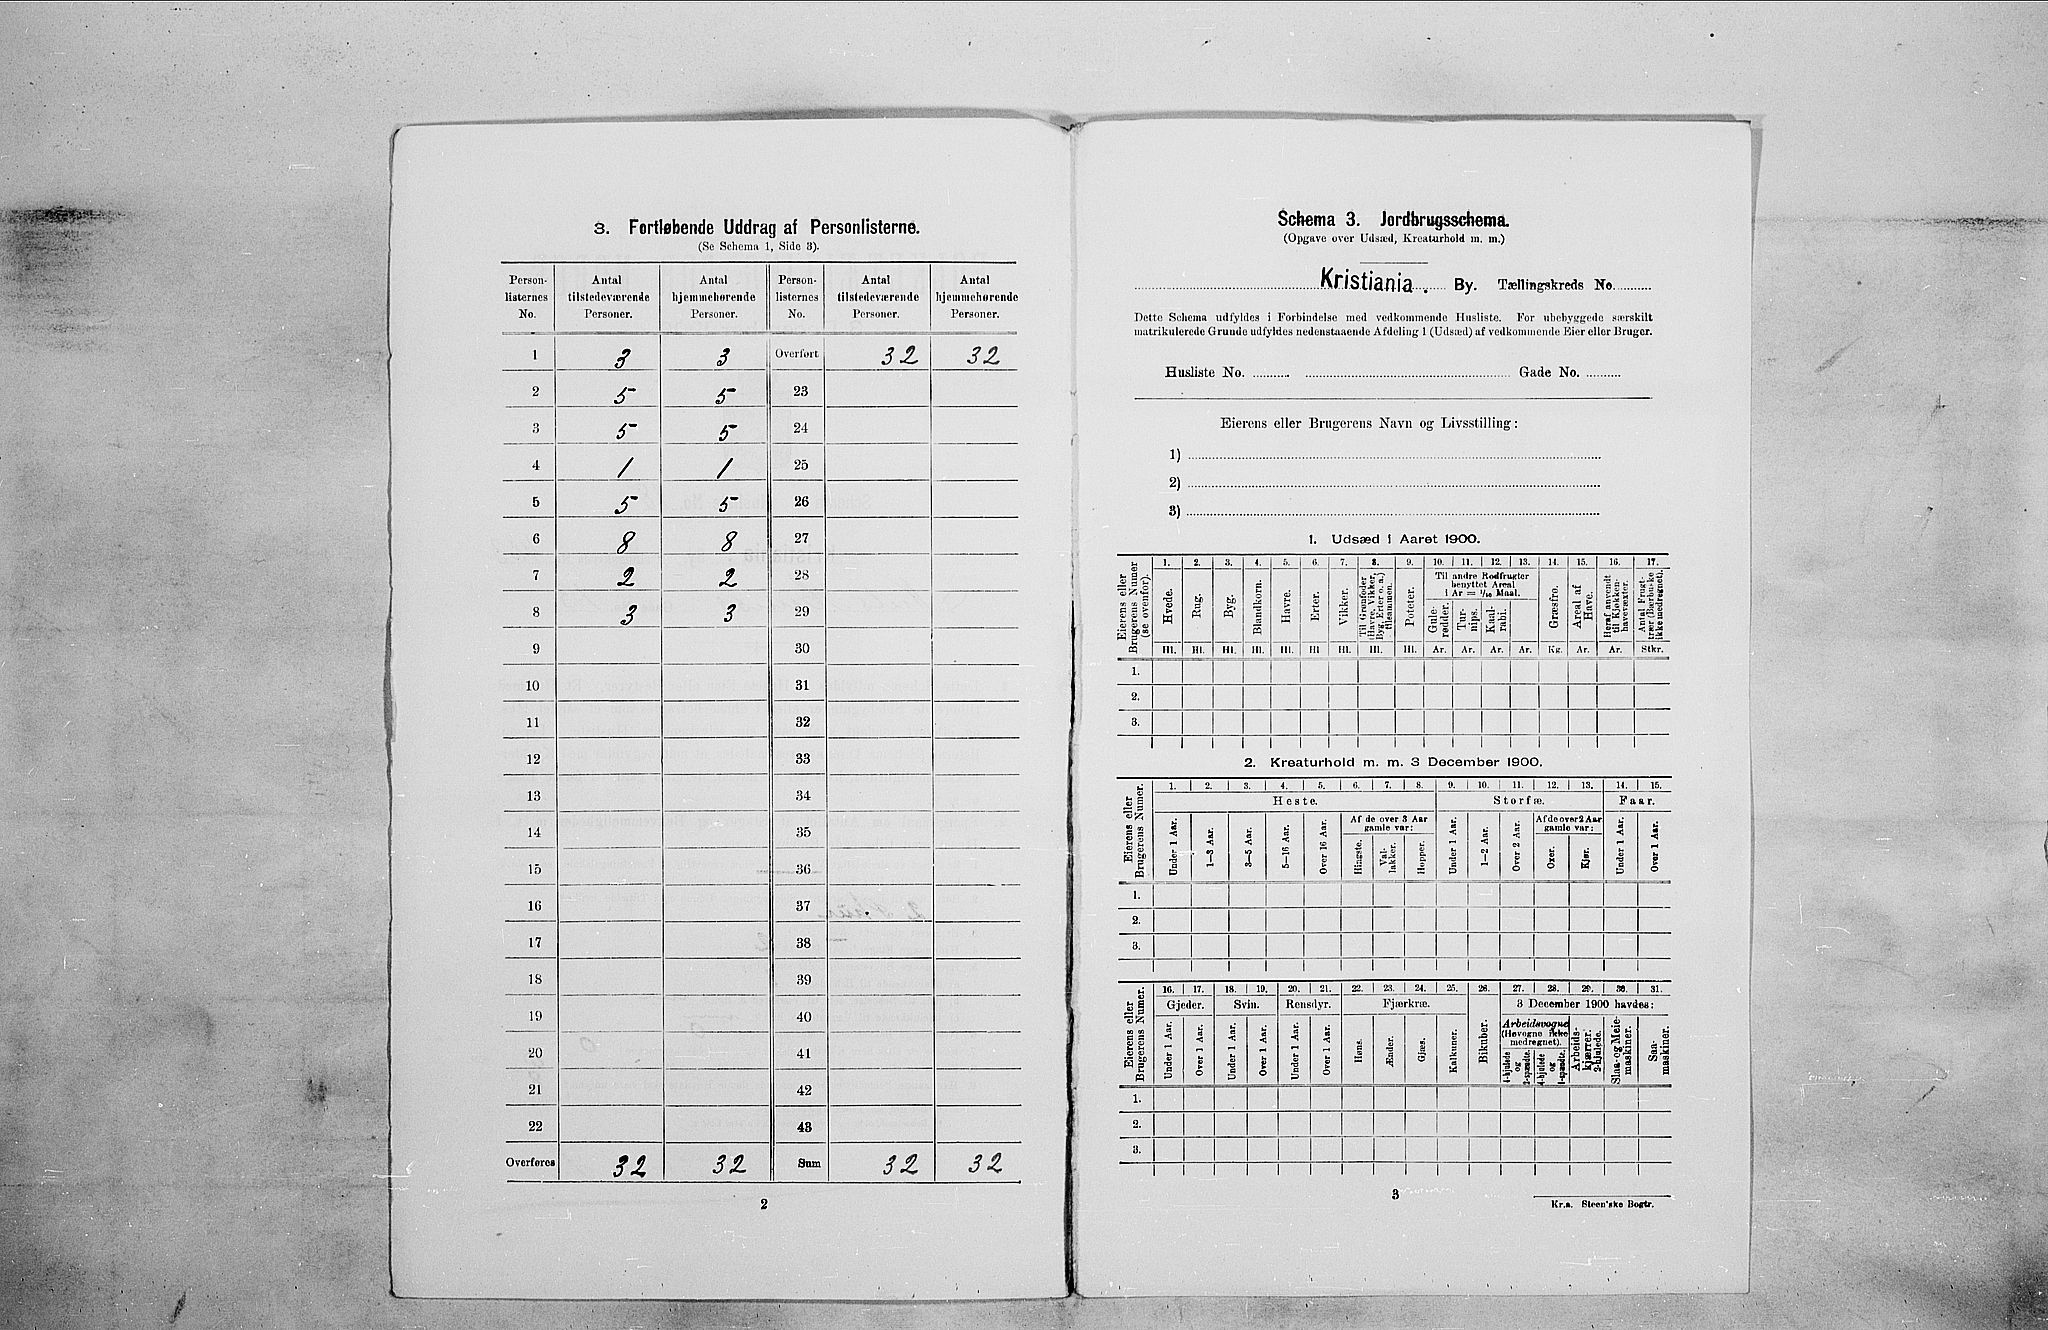 3. Fortløbende Uddrag af Personlisterne.
(Se Schema 1, Side 3).
Person-listernes No. | Antal tilstedeværende Personer. | Antal hjemmehørende Personer. | Person-listernes No. | Antal tilstedeværende Personer. | Antal hjemmehørende Personer.
1 3 3 Overført 32 32
2 5 5 23
3 5 5 24
4 1 1 25
5 5 5 26
6 8 8 27
7 2 2 28
8 3 3 29
9 30
10 31
11 32
12 33
13 34
14 35
15 36
16 37
17 38
18 39
19 40
20 41
21 42
22 43
Overføres 32 32 Sum 32 32
2
Schema 3. Jordbrugsschema.
(Opgave over Udsæd, Kreaturhold m. m.)
Kristiania. By. Tællingskreds No.
Dette Schema udfyldes i Forbindelse med vedkommende Husliste. For ubebyggede særskilt
matrikulerede Grunde udfyldes nedenstaaende Afdeling 1 (Udsæd) af vedkommende Eier eller Bruger.
Husliste No. Gade No.
Eierens eller Brugerens Navn og Livsstilling:
1)
2)
3)
1. Udsæd i Aaret 1900.
Eierens eller Brugerens Numer (se ovenfor).
1. 2. 3. 4. 5. 6. 7. 8. 9. 10. 11. 12. 13. 14. 15. 16. 17.
Hvede. Rug. Byg. Blandkorn. Havre. Erter. Vikker. Til Grønfoder (Havre, Vikker, Byg, Erter o. a.) tilsammen. Poteter.
Til andre Rodfrugter benyttet Areal 1 Ar = 1/10 Maal.
Gule-rødder. Tur-nips. Kaal-rabi. Græsfrø. Areal af Have. Heraf anvendt til Kjøkken-havevæxter. Antal Frugt-trær (Bærbuske ikke medregnet).
Hl. Hl. Hl. Hl. Hl. Hl Hl. Hl. Hl. Ar. Ar. Ar. Ar. Kg. Ar. Ar. Stkr.
1.
2.
3.
2. Kreaturhold m. m. 3 December 1900.
Eierens eller Brugerens Numer.
1. 2. 3. 4. 5. 6. 7. 8. 9. 10. 11. 12. 13. 14. 15.
Heste. Storfæ. Faar.
Af de over 3 Aar gamle var: Af de over 2 Aar gamle var:
Under 1 Aar. 1—3 Aar. 3—5 Aar. 5—16 Aar. Over 16 Aar. Hingste. Val-lakker. Hopper. Under 1 Aar. 1—2 Aar. Over 2 Aar. Oxer. Kjør. Under 1 Aar. Over 1 Aar.
1.
2.
3.
Eierens eller Brugerens Numer.
16. 17. 18. 19. 20. 21. 22. 23. 24. 25. 26. 27. 28. 29. 30. 31.
Gjeder. Svin. Rensdyr. Fjærkræ. Bikuber. 3 December 1900 havdes:
Under 1 Aar. Over 1 Aar. Under 1 Aar. Over 1 Aar. Under 1 Aar. Over 1 Aar. Høns. Ænder. Gjæs. Kalkuner.
Arbeidsvogne (Høvogne ikke medregnet).
4-hjulede og 2-spændte. 4-hjulede og 1-spændte. Arbeids-kjærrer. 2-hjulede. Slaa- og Meie-maskiner. Saa-maskiner.
1.
2.
3.
3
Kr.a. Steen'ske Bogtr.